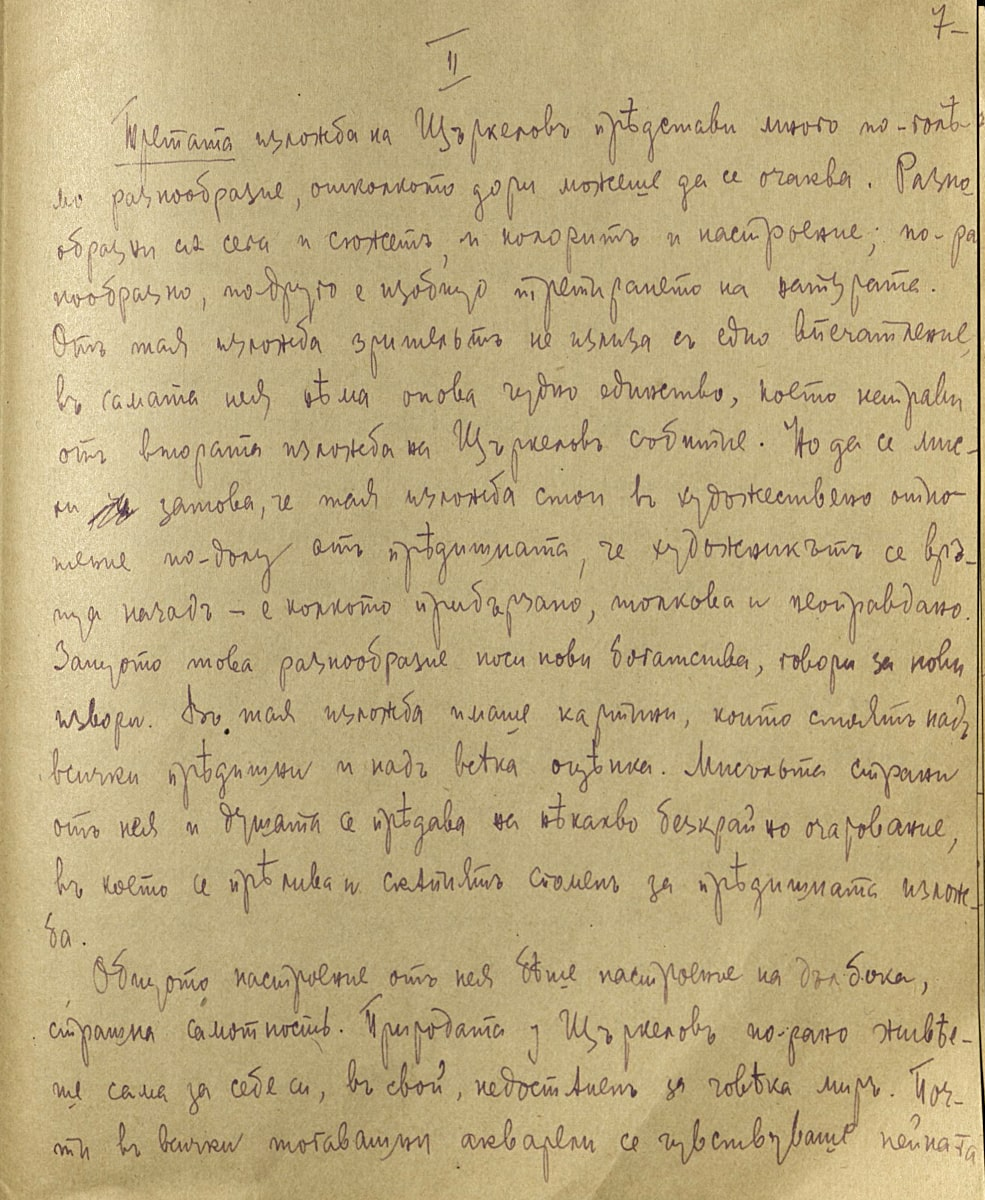 7
II
Третата изложба на Щъркеловъ прѣдстави много по-голѣ-
мо разнообразие, отколкото дори можеше да се очаква. Разно-
образни сѫ сега и сюжетъ, и колоритъ и настроение; по-ра
нообразно, по-друго е изобщо третирането на натурата.
Отъ тая изложба зрительтъ не излиза съ едно впечатление,
въ самата нея нѣма онова чудно единство, което направи
отъ втората изложба на Щъркеловъ събитие. Но да се мис-
ли затова, че тая изложба стои въ художествено отно-
шение по-долу отъ прѣдишната, че художникътъ се връ-
ща назадъ – е колкото прибързано, толкова и неоправдано.
Защото това разнообразие носи нови богатства, говори за нови
извори. Въ тая изложба имаше картини, които стоятъ надъ
всички прѣдишни и надъ всѣка оцѣнка. Мисъльта страни
отъ нея и душата се прѣдава на нѣкакво безкрайно очарование,
въ което се прѣлива и скѫпиятъ споменъ за прѣдишната излож-
ба.
Общото настроение отъ нея бѣше настроение на дълбока,
страшна самотность. Природата у Щъркеловъ по-рано живѣе-
ше сама за себе си, въ свой, недостѫпенъ за човѣка миръ. Поч-
ти въ всички тогавашни акварели се чувствуваше нейната